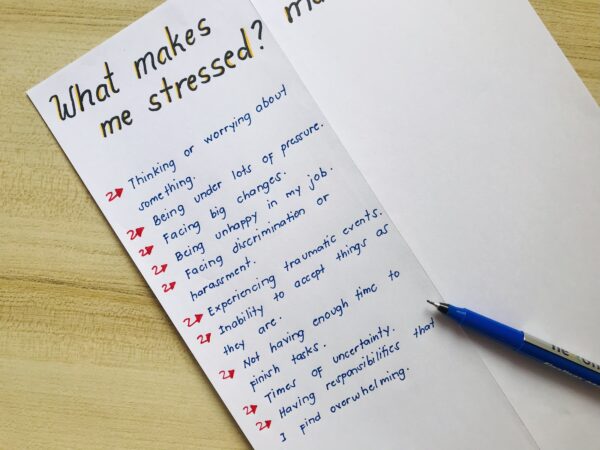 What makes
me stressed?
Thinking or worrying about
something.
Being under lots of pressure.
Facing big changes.
Being unhappy in my job.
Facing discrimination or
harassment.
Experiencing traumatic events.
Inability to accept things as
they are.
Not having enough time to
finish tasks.
Times of uncertainty.
Having responsibilities that
I find overwhelming.